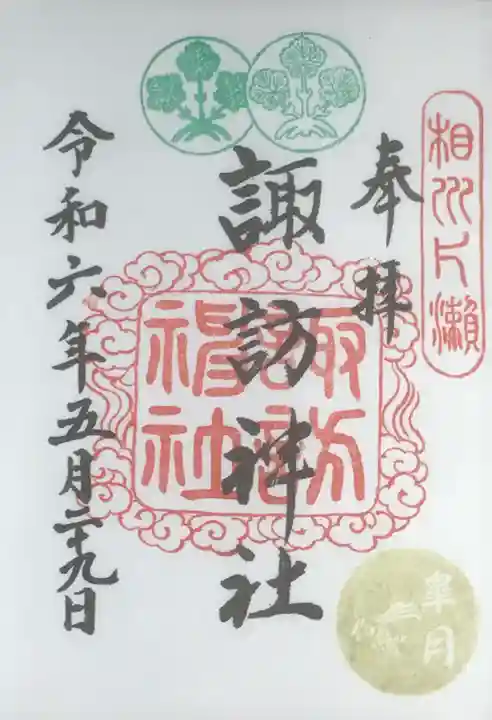 相州片瀬
奉拝
諏訪神社
諏訪神社
令和六年五月二十九日
皐月